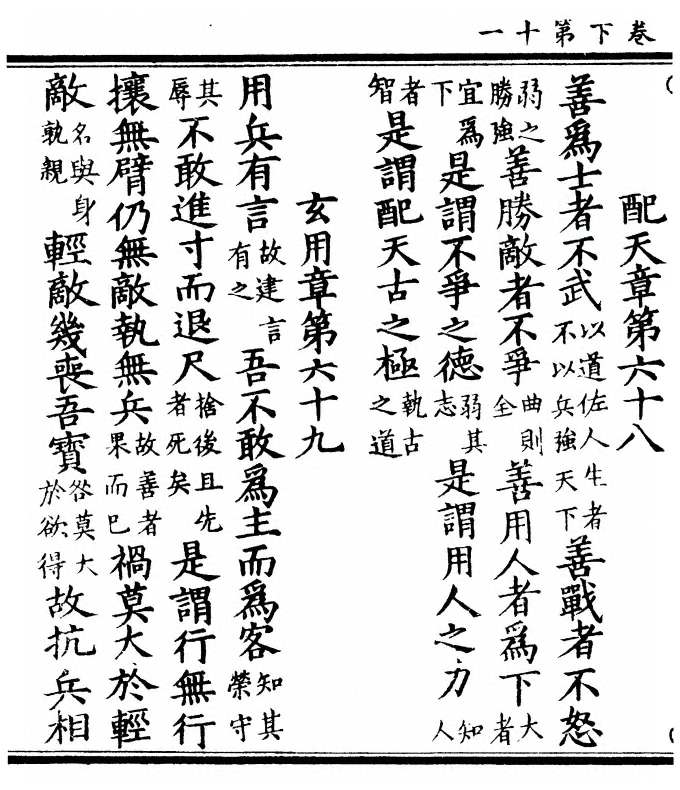 卷下第十一
配天章第六十八
善爲士者不武以道佐人生者不以兵強天下善戰者不怒
弱之勝強善勝敵者不爭曲則全善用人者爲下大者
宜爲下是謂不爭之德弱其志是謂用人之力知人
者智是謂配天古之極執古之道
玄用章第六十九
用兵有言故建言有之吾不敢爲主而爲客知其榮守
其辱不敢進寸而退尺捨後且先者死矣是謂行無行
攘無臂仍無敵執無兵故善者果而已禍莫大於輕
敵名與身孰親輕敵幾喪吾寶咎莫大於欲得故抗兵相